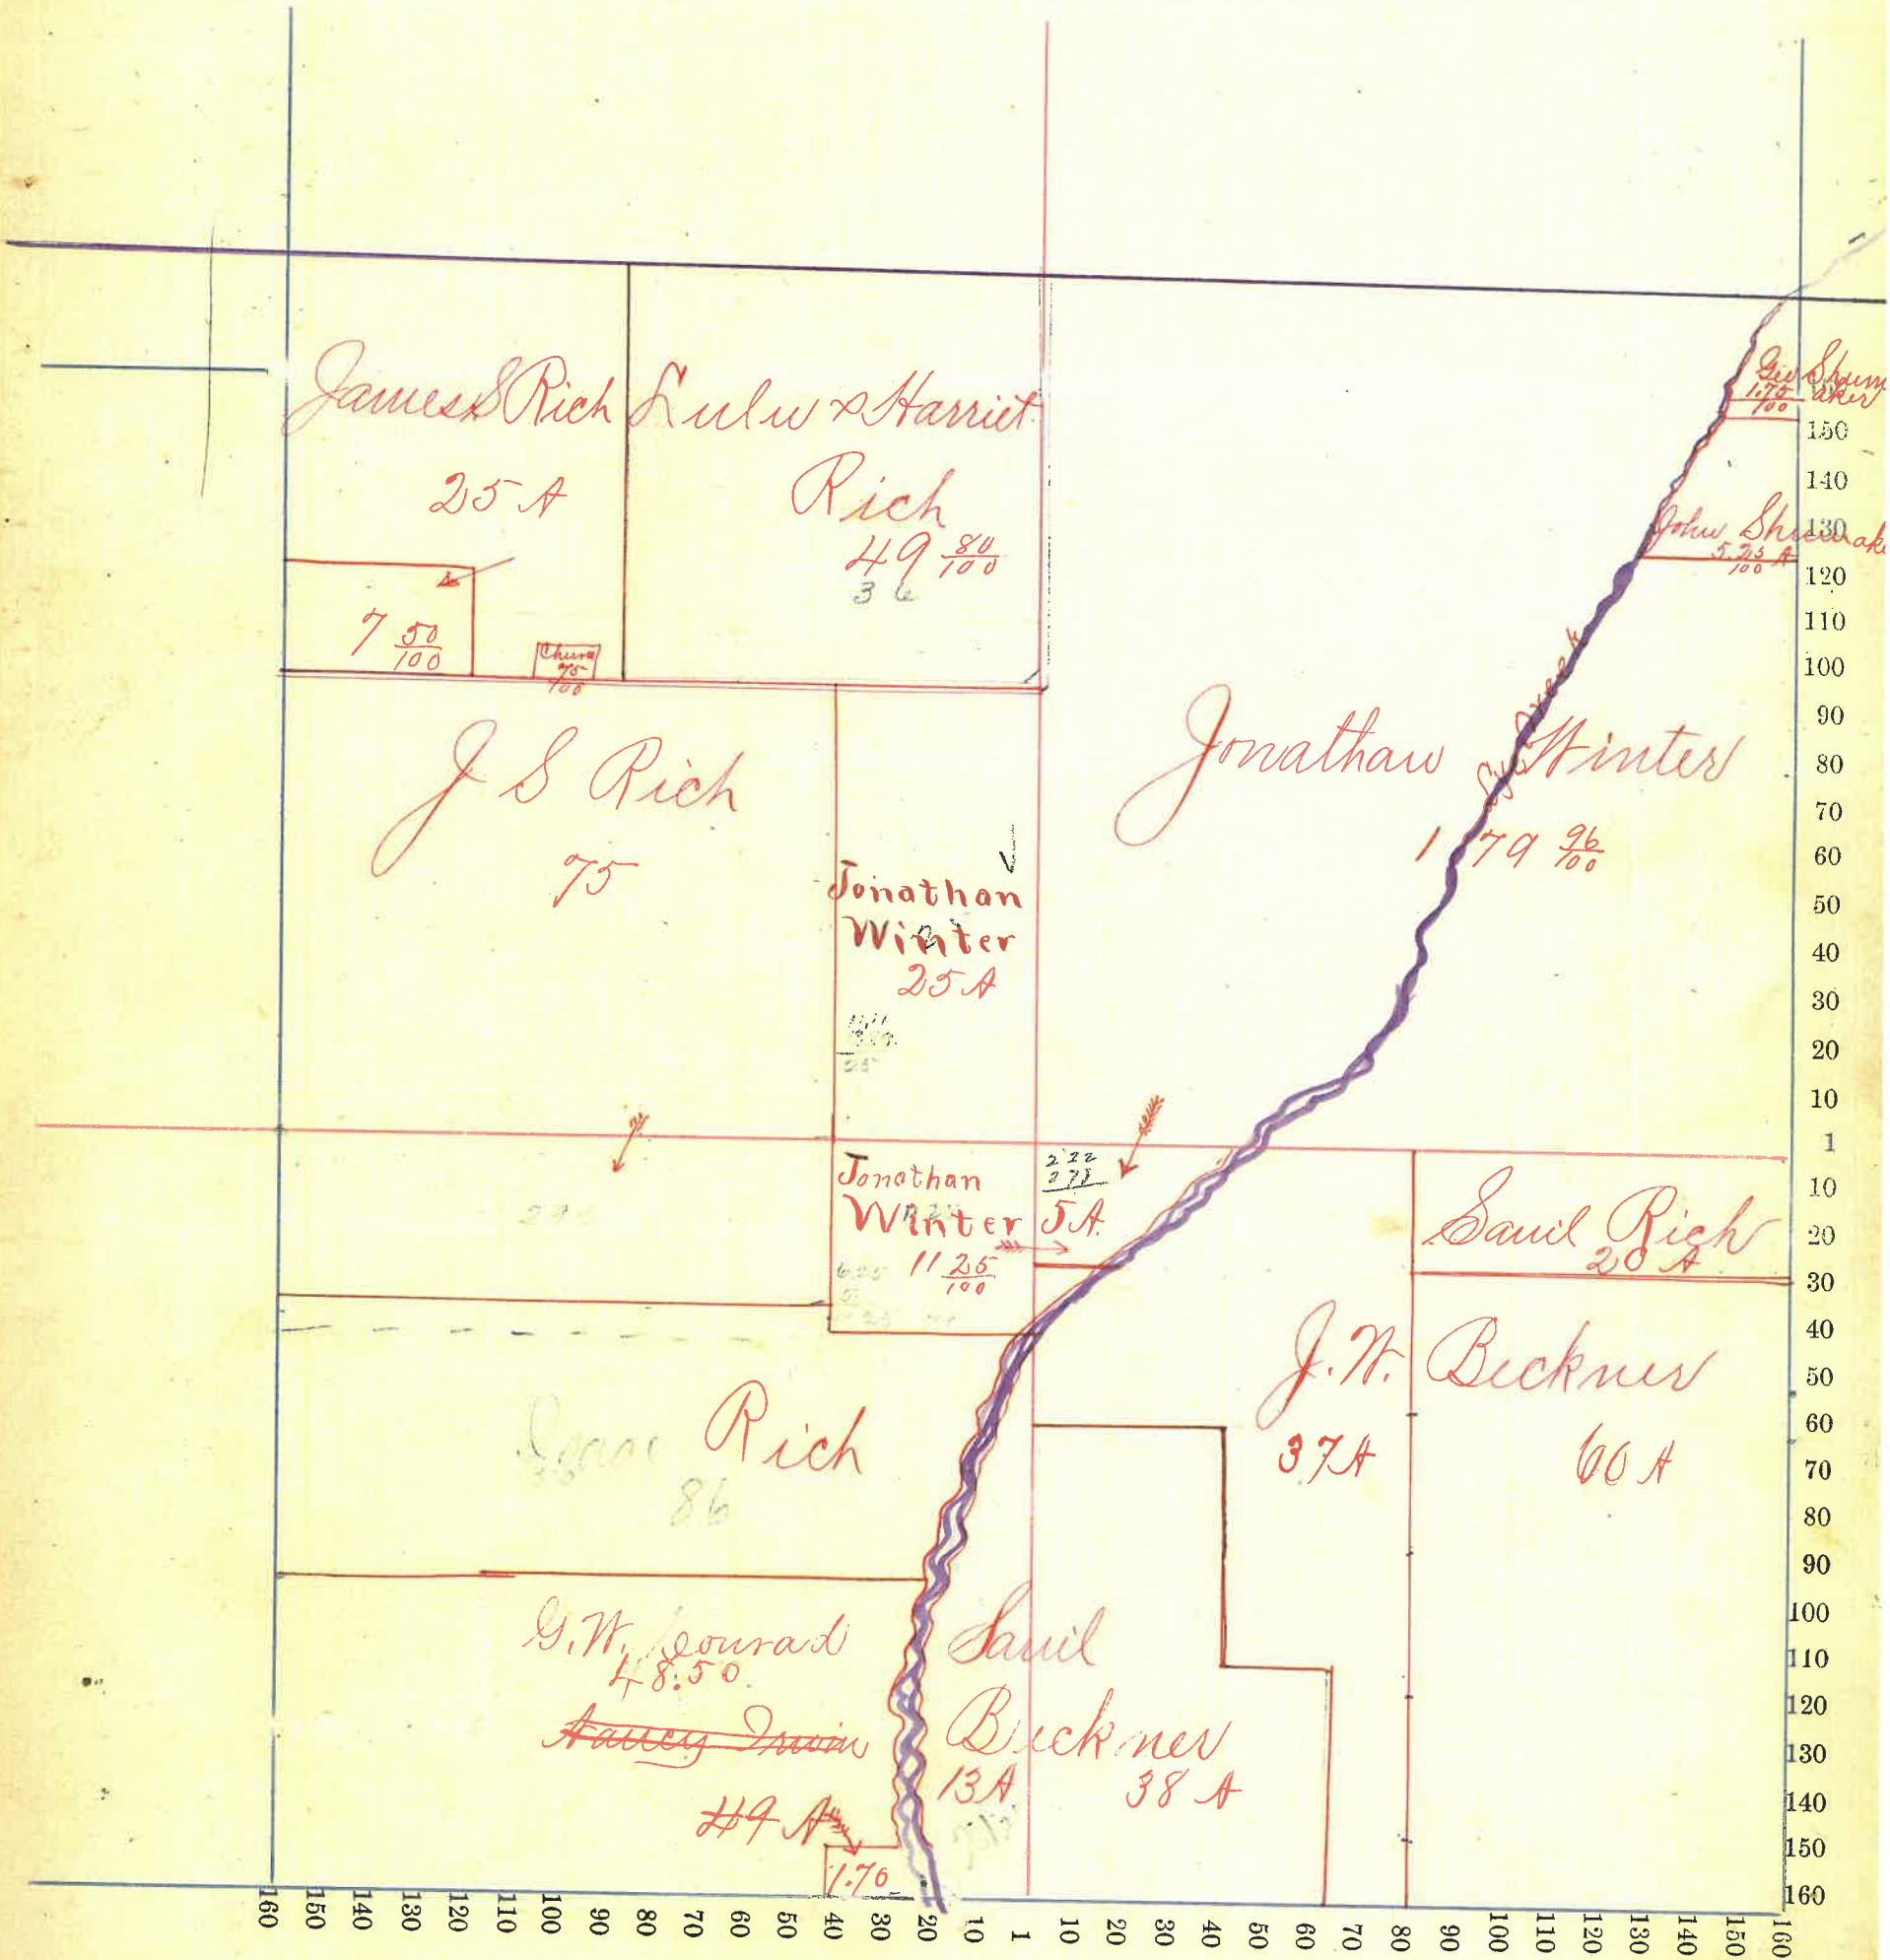 James S Rich
25 A
7 50/100
Church
75/100
Lulu & Harriet
Rich
49 80/100
36
Geo Shum
aker
1.75/100
John Shumak
5.25/100 A
J S Rich
75
Jonathan
Winter
25 A
Jonathan Winter
179 96/100
Creek
Jonathan
Winter
11 25/100
222
278
5 A.
Saml Rich
20 A
J. W. Beckner
37 A
60 A
Isaac Rich
86
G. W. Conrad
48.50
Nancy Irwin
49 A
1.70
Saml
Beckner
13 A
38 A
150
140
130
120
110
100
90
80
70
60
50
40
30
20
10
1
10
20
30
40
50
60
70
80
90
100
110
120
130
140
150
160
160 150 140 130 120 110 100 90 80 70 60 50 40 30 20 10 1 10 20 30 40 50 60 70 80 90 100 110 120 130 140 150 160